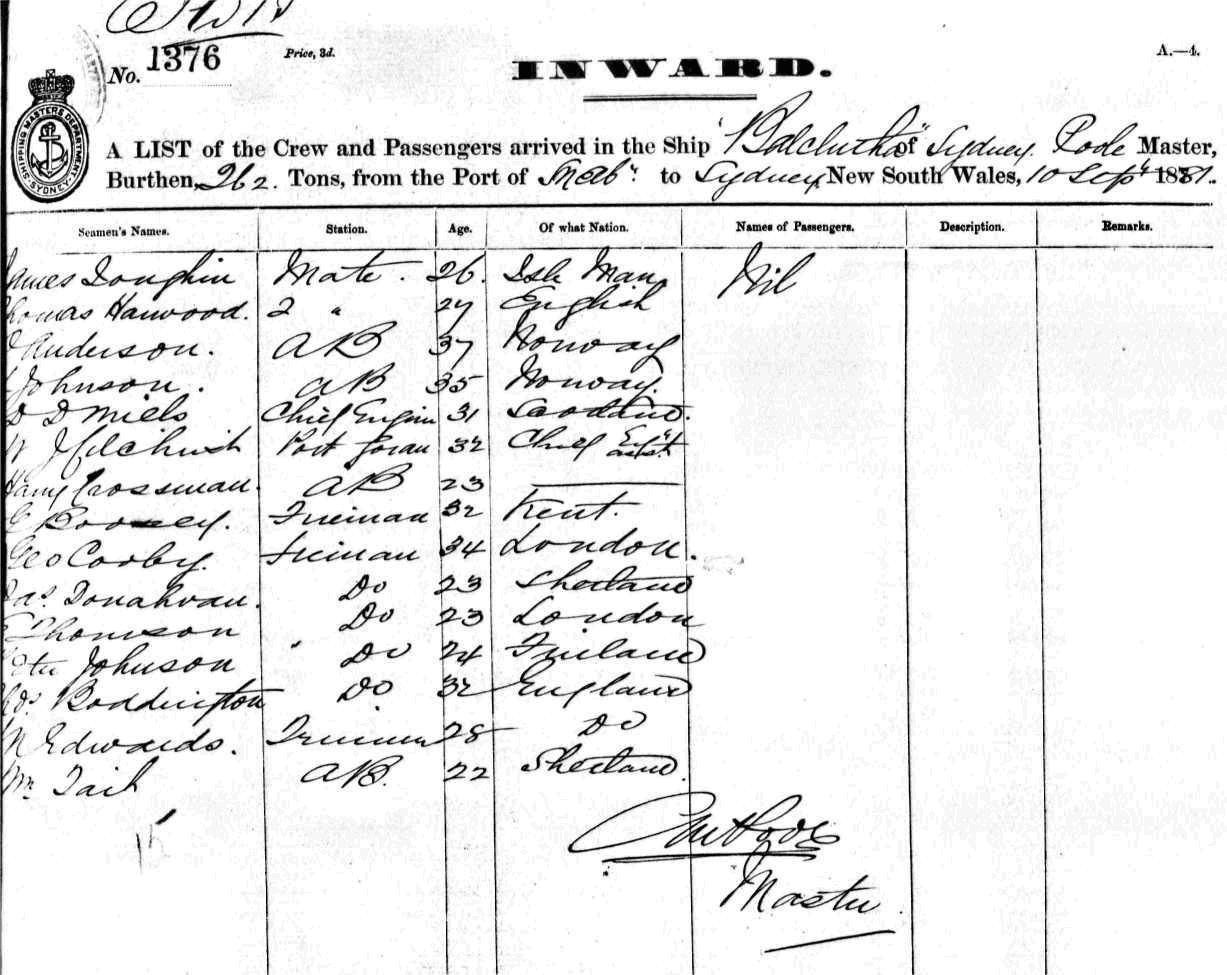 No. 1376
Price, 3d.
INWARD.
A.—4.
SHIPPING MASTERS DEPARTMENT SYDNEY
A LIST of the Crew and Passengers arrived in the Ship "Balclutha" of Sydney. Poole Master,
Burthen, 262. Tons, from the Port of to Sydney, New South Wales, 10 Sept 1881.
Seamen's Names. Station. Age. Of what Nation. Names of Passengers. Description. Remarks.
James Mate 26. Isle Man Nil
Thomas Harwood. 2 " 27 English
Anderson. AB 37 Norway
Johnson. AB 35 Norway.
D D Miels Chief Engin 31 Scotland.
W Gilchrist 32 Chief
Harry Crossman. AB 23
Boosey. Fireman 32 Kent.
Geo Corby. Fireman 34 London.
Jas. Donahvan. Do 23 Shetland
Thomson Do 23 London
Peter Johnson " Do 24 Finland
Chds Boddington Do 32 England
Edwards. 28 Do
Wm Tait AB. 22 Shetland.
15
Master